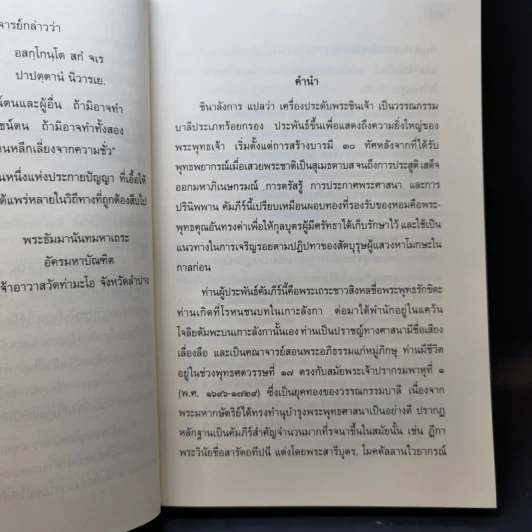 จารย์กล่าวว่า
อสกฺโกนฺโต สกํ จเร
ปาปตฺตานํ นิวารเย.
น์ตนและผู้อื่น ถ้ามิอาจทำ
ชน์ตน ถ้ามิอาจทำทั้งสอง
านหลีกเลี่ยงจากความชั่ว"
นหนึ่งแห่งประกายปัญญา ที่เอื้อให้
ด้แพร่หลายในวิถีทางที่ถูกต้องสืบไป
พระธัมมานันทมหาเถระ
อัครมหาบัณฑิต
จ้าอาวาสวัดท่ามะโอ จังหวัดลำปาง
คำนำ
ชินาลังการ แปลว่า เครื่องประดับพระชินเจ้า เป็นวรรณกรรม
บาลีประเภทร้อยกรอง ประพันธ์ขึ้นเพื่อแสดงถึงความยิ่งใหญ่ของ
พระพุทธเจ้า เริ่มตั้งแต่การสร้างบารมี ๓๐ ทัศหลังจากที่ได้รับ
พุทธพยากรณ์เมื่อเสวยพระชาติเป็นสุเมธดาบส จนถึงการประสูติ เสด็จ
ออกมหาภิเนษกรมณ์ การตรัสรู้ การประกาศพระศาสนา และการ
ปรินิพพาน คัมภีร์นี้เปรียบเหมือนผอบทองที่รองรับของหอมคือพระ-
พุทธคุณอันทรงค่าเพื่อให้กุลบุตรผู้มีศรัทธาได้เก็บรักษาไว้ และใช้เป็น
แนวทางในการเจริญรอยตามปฏิปทาของสัตบุรุษผู้แสวงหาโมกษะใน
กาลก่อน
ท่านผู้ประพันธ์คัมภีร์นี้คือพระเถระชาวสิงหลชื่อพระพุทธรักขิตะ
ท่านเกิดที่โรหนชนบทในเกาะลังกา ต่อมาได้พำนักอยู่ในแคว้น
โจลิยตัมพะบนเกาะลังกานั้นเอง ท่านเป็นปราชญ์ทางศาสนามีชื่อเสียง
เลื่องลือ และเป็นคณาจารย์สอนพระอภิธรรมแก่หมู่ภิกษุ ท่านมีชีวิต
อยู่ในช่วงพุทธศตวรรษที่ ๑๗ ตรงกับสมัยพระเจ้าปรากรมพาหุที่ ๑
(พ.ศ. ๑๖๙๖-๑๗๒๙) ซึ่งเป็นยุคทองของวรรณกรรมบาลี เนื่องจาก
พระมหากษัตริย์ได้ทรงทำนุบำรุงพระพุทธศาสนาเป็นอย่างดี ปรากฏ
หลักฐานเป็นคัมภีร์สำคัญจำนวนมากที่รจนาขึ้นในสมัยนั้น เช่น ฎีกา
พระวินัยชื่อสารัตถทีปนี แต่งโดยพระสารีบุตร, โมคคัลลานไวยากรณ์